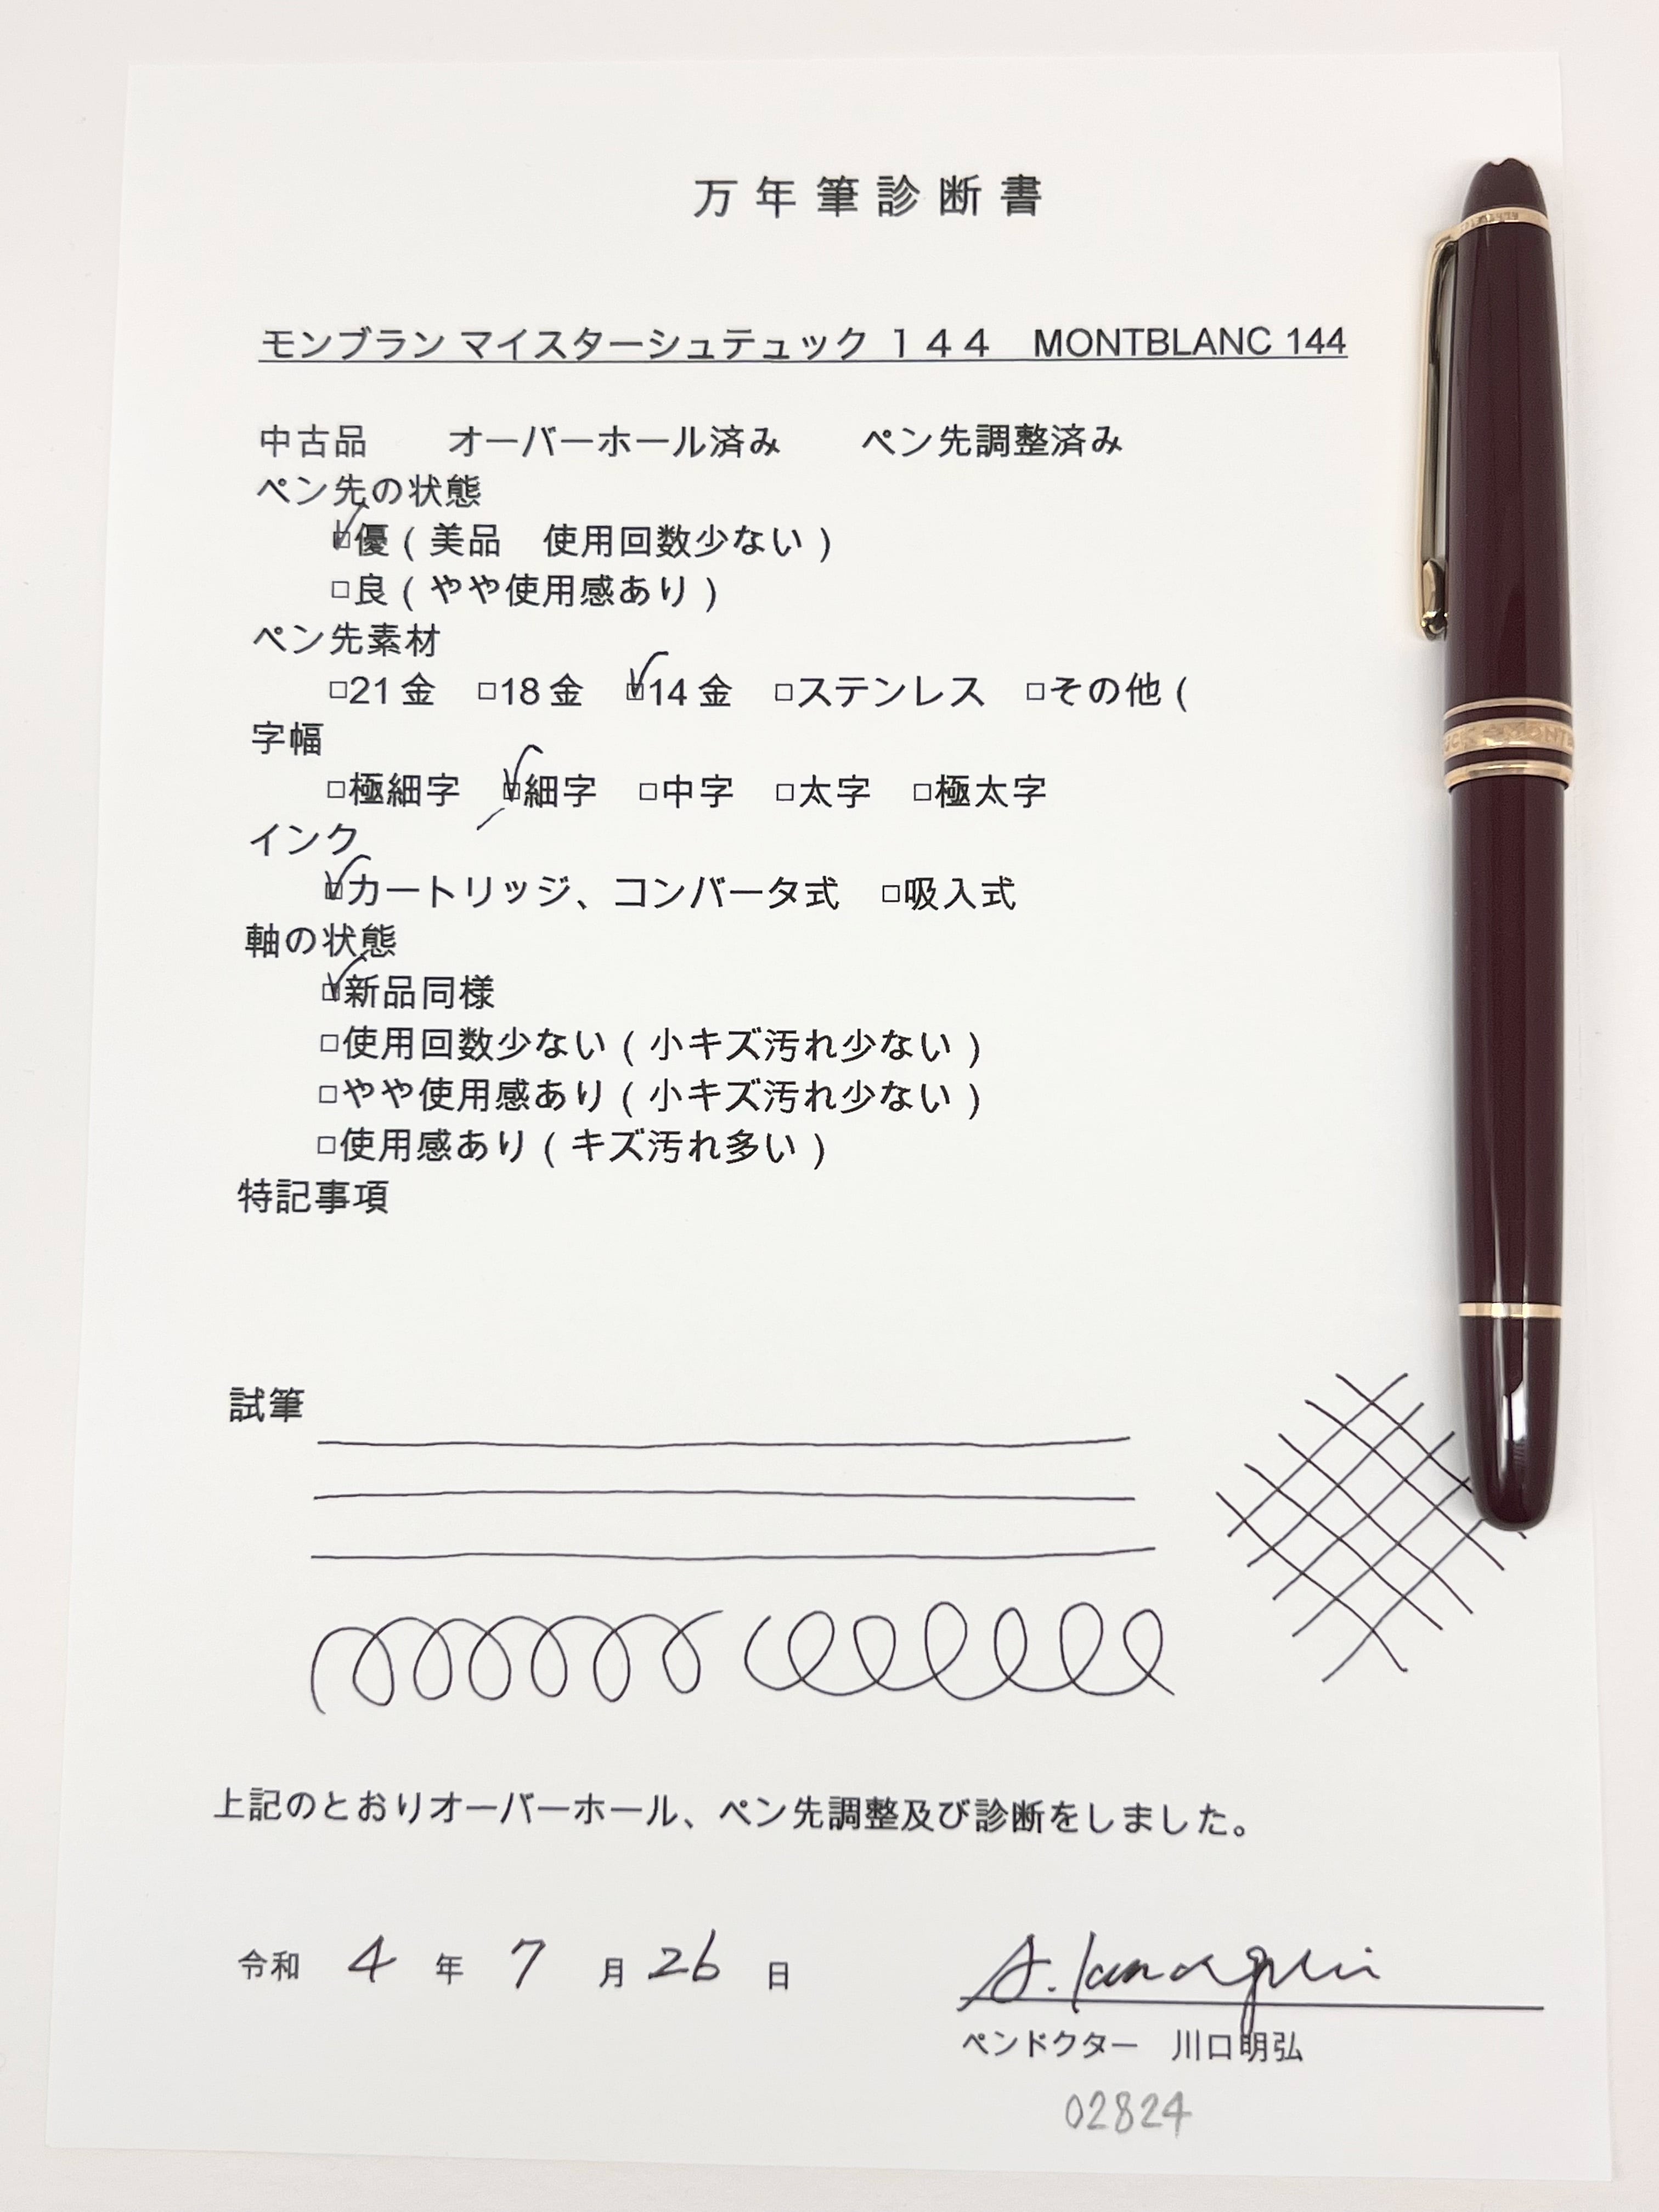 万年筆診断書
モンブラン マイスターシュテュック １４４　MONTBLANC 144
中古品　　オーバーホール済み　　ペン先調整済み
ペン先の状態
☑優（美品　使用回数少ない）
□良（やや使用感あり）
ペン先素材
□21 金　□18 金　☑14 金　□ステンレス　□その他（
字幅
□極細字　☑細字　□中字　□太字　□極太字
インク
☑カートリッジ、コンバータ式　□吸入式
軸の状態
☑新品同様
□使用回数少ない（小キズ汚れ少ない）
□やや使用感あり（小キズ汚れ少ない）
□使用感あり（キズ汚れ多い）
特記事項
試筆
上記のとおりオーバーホール、ペン先調整及び診断をしました。
令和　4　年　7　月　26　日
A. Kawaguchi
ペンドクター　川口明弘
02824